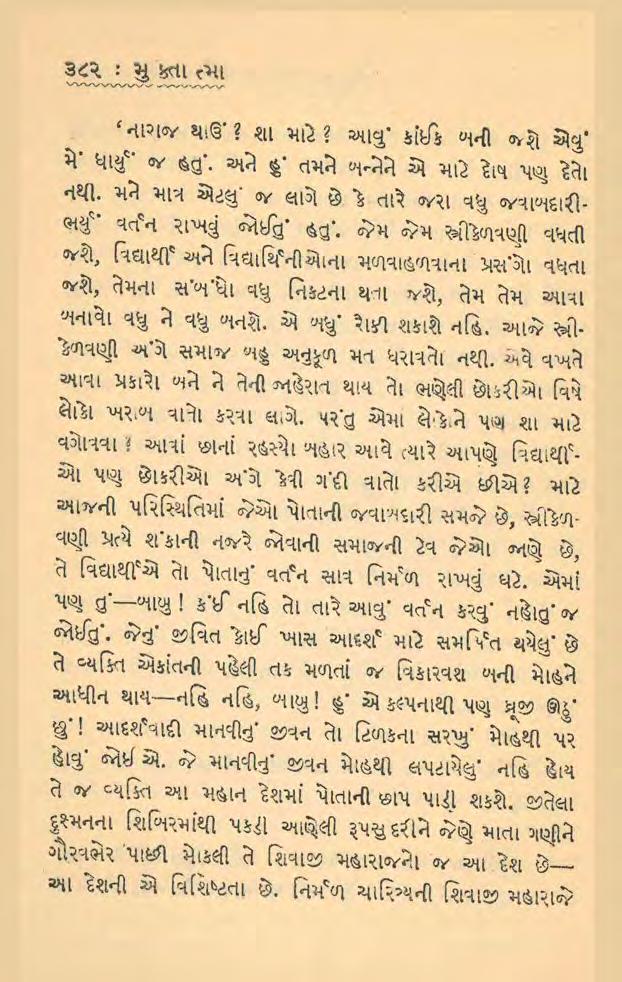 ૩૮૨ : મુ ક્તા ત્મા
‘નારાજ થાઉં? શા માટે? આવું કાંઈક બની જશે એવું
મેં ધાર્યું જ હતું. અને હું તમને બન્નેને એ માટે દોષ પણ દેતો
નથી. મને માત્ર એટલું જ લાગે છે કે તારે જરા વધુ જવાબદારી-
ભર્યું વર્તન રાખવું જોઈતું હતું. જેમ જેમ સ્ત્રીકેળવણી વધતી
જશે, વિદ્યાર્થી અને વિદ્યાર્થિનીઓના મળવાહળવાના પ્રસંગો વધતા
જશે, તેમના સંબંધો વધુ નિકટના થતા જશે, તેમ તેમ આવા
બનાવો વધુ ને વધુ બનશે. એ બધું રોકી શકાશે નહિ. આજે સ્ત્રી-
કેળવણી અંગે સમાજ બહુ અનુકૂળ મત ધરાવતો નથી. એવે વખતે
આવા પ્રકારો બને ને તેની જાહેરાત થાય તો ભણેલી છોકરીઓ વિષે
લોકો ખરાબ વાતો કરવા લાગે. પરંતુ એમા લોકોને પણ શા માટે
વગોવવા? આવાં છાનાં રહસ્યો બહાર આવે ત્યારે આપણે વિદ્યાર્થી-
ઓ પણ છોકરીઓ અંગે કેવી ગંદી વાતો કરીએ છીએ? માટે
આજની પરિસ્થિતિમાં જેઓ પોતાની જવાબદારી સમજે છે, સ્ત્રીકેળ-
વણી પ્રત્યે શંકાની નજરે જોવાની સમાજની ટેવ જેઓ જાણે છે,
તે વિદ્યાર્થીએ તો પોતાનું વર્તન સાવ નિર્મળ રાખવું ઘટે. એમાં
પણ તું—બાબુ! કંઈ નહિ તો તારે આવું વર્તન કરવું નહોતું જ
જોઈતું. જેનું જીવિત કોઈ ખાસ આદર્શ માટે સમર્પિત થયેલું છે
તે વ્યક્તિ એકાંતની પહેલી તક મળતાં જ વિકારવશ બની મોહને
આધીન થાય—નહિ નહિ, બાબુ! હું એ કલ્પનાથી પણ ધ્રૂજી ઊઠું
છું! આદર્શવાદી માનવીનું જીવન તો ટિળકના સરખું મોહથી પર
હોવું જોઈ એ. જે માનવીનું જીવન મોહથી લપટાયેલું નહિ હોય
તે જ વ્યક્તિ આ મહાન દેશમાં પોતાની છાપ પાડી શકશે. જીતેલા
દુશ્મનના શિબિરમાંથી પકડી આણેલી રૂપસુંદરીને જેણે માતા ગણીને
ગૌરવભેર પાછી મોકલી તે શિવાજી મહારાજનો જ આ દેશ છે—
આ દેશની એ વિશિષ્ટતા છે. નિર્મળ ચારિત્ર્યની શિવાજી મહારાજે